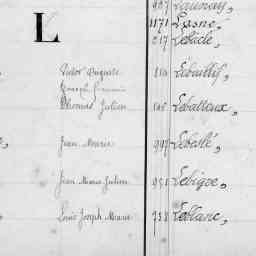 Launay,
1171 Lasné,
L
217 Lebacle,
Victor Auguste
Lebaillif,
Joseph
Thomas Julien
Leballeux,
Jean Marie
997 Lebeslé,
Jean Marie Julien
951 Lebigoe,
Louis Joseph Marie
758 Leblanc,